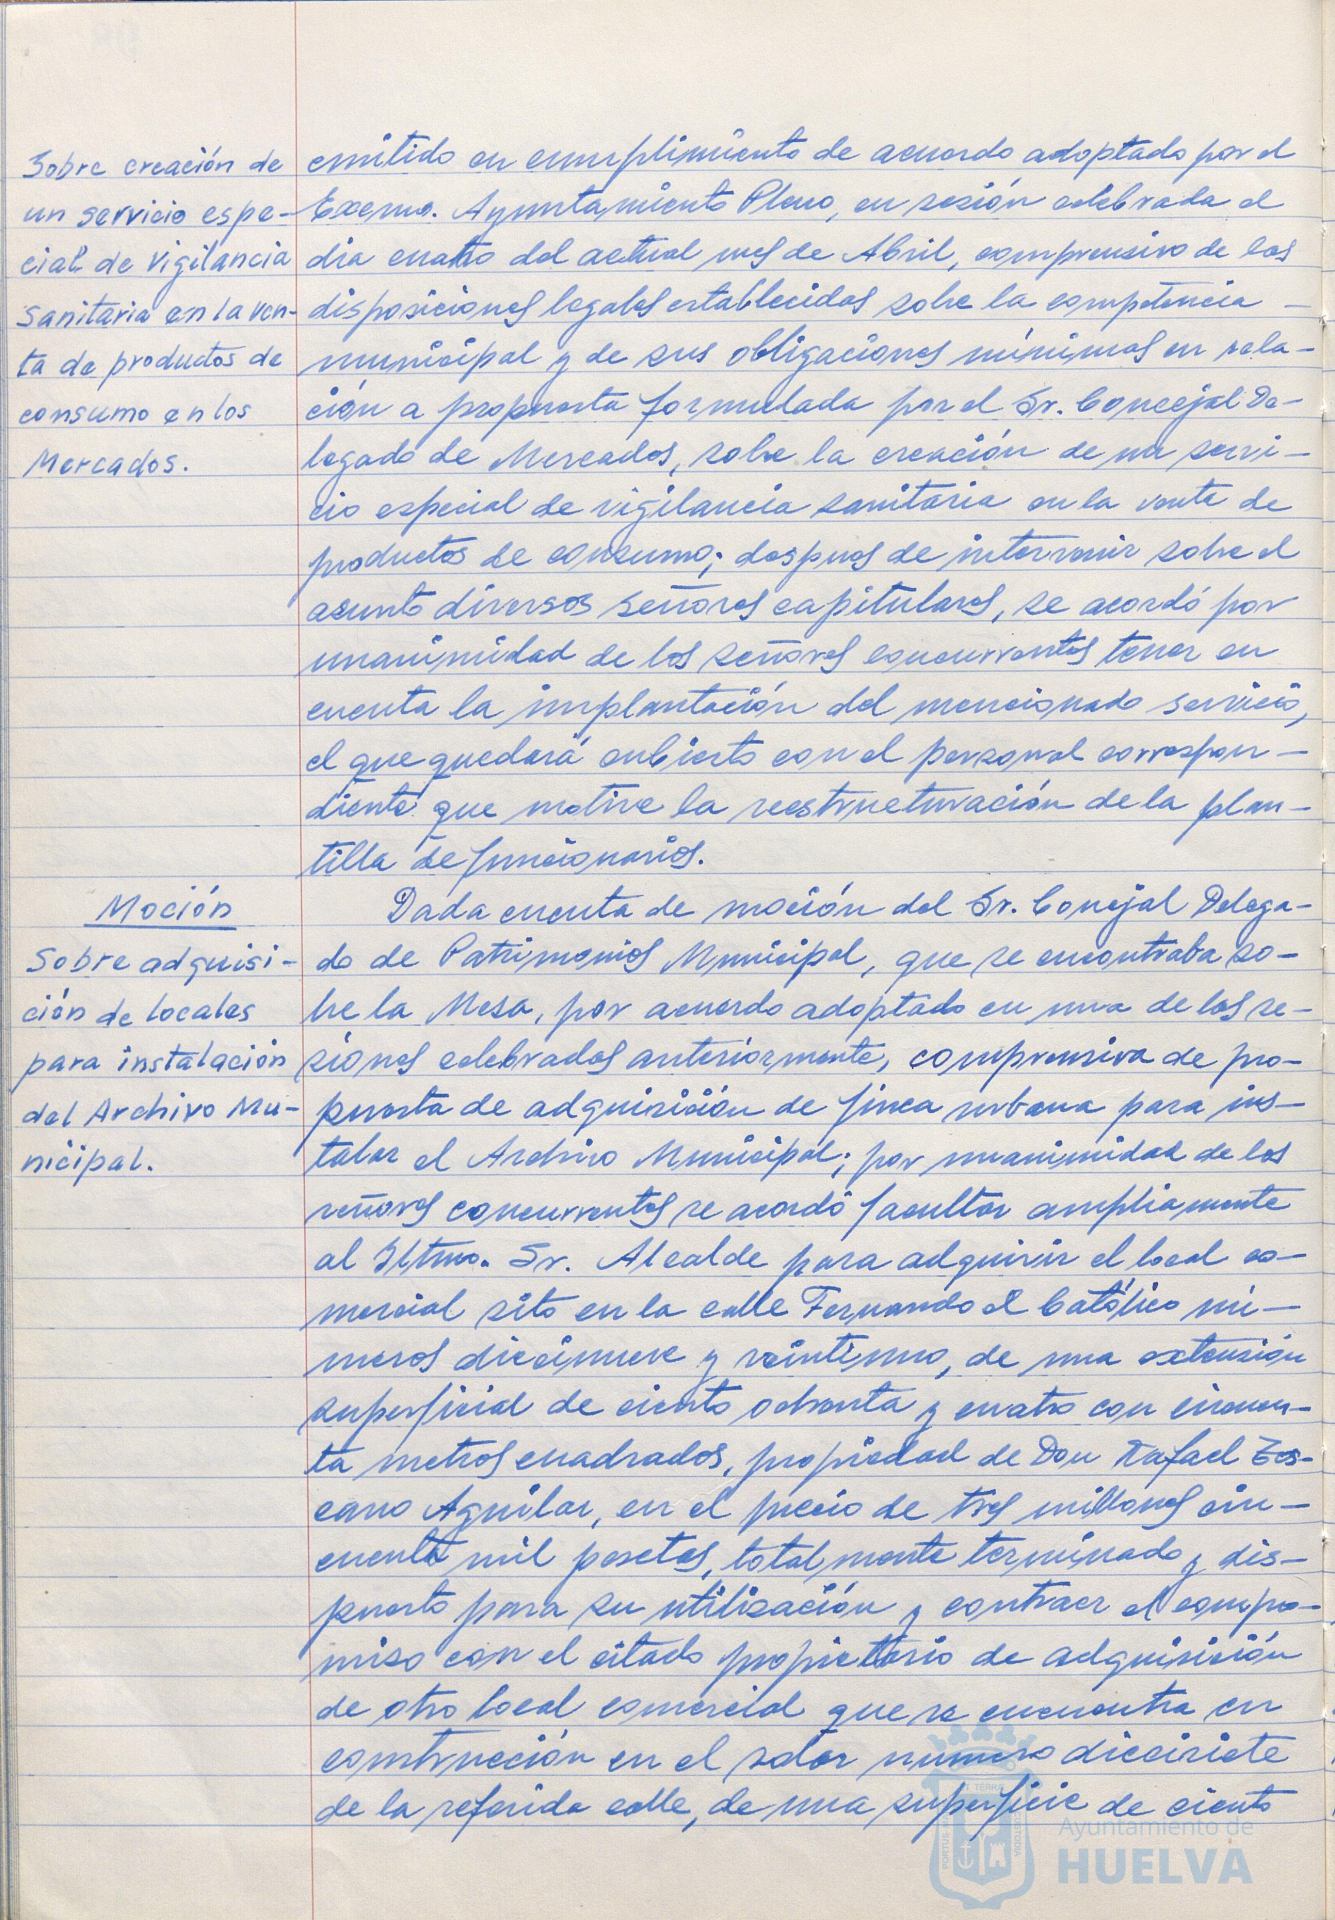 Sobre creación de
un servicio espe-
cial de vigilancia
sanitaria en la ven-
ta de productos de
consumo en los
Mercados.
emitido en cumplimiento de acuerdo adoptado por el
Excmo. Ayuntamiento Pleno, en sesión celebrada el
dia cuatro del actual mes de Abril, comprensivo de las
disposiciones legales establecidas sobre la competencia
municipal y de sus obligaciones mínimas en rela-
ción a propuesta formulada por el Sr. Concejal De-
legado de Mercados, sobre la creación de un servi-
cio especial de vigilancia sanitaria en la venta de
productos de consumo; despues de intervenir sobre el
asunto diversos señores capitulares, se acordó por
unanimidad de los señores concurrentes tener en
cuenta la implantación del mencionado servicio,
el que quedará cubierto con el personal correspon-
diente que motive la reestructuración de la plan-
tilla de funcionarios.
Moción
Sobre adquisi-
ción de locales
para instalación
del Archivo Mu-
nicipal.
Dada cuenta de moción del Sr. Concejal Delega-
do de Patrimonios Municipal, que se encontraba so-
bre la Mesa, por acuerdo adoptado en una de las se-
siones celebradas anteriormente, comprensiva de pro-
puesta de adquisición de finca urbana para ins-
talar el Archivo Municipal; por unanimidad de los
señores concurrentes se acordó facultar ampliamente
al Iltmo. Sr. Alcalde para adquirir el local co-
mercial sito en la calle Fernando el Católico nú-
meros diecinueve y veintiuno, de una extensión
superficial de ciento ochenta y cuatro con cincuen-
ta metros cuadrados, propiedad de Don Rafael Los-
cano Aguilar, en el precio de tres millones cin-
cuenta mil pesetas, totalmente terminado y dis-
puesto para su utilización y contraer el compro-
miso con el citado propietario de adquisición
de otro local comercial que se encuentra en
construcción en el solar numero diecisiete
de la referida calle, de una superficie de ciento
Ayuntamiento de
HUELVA